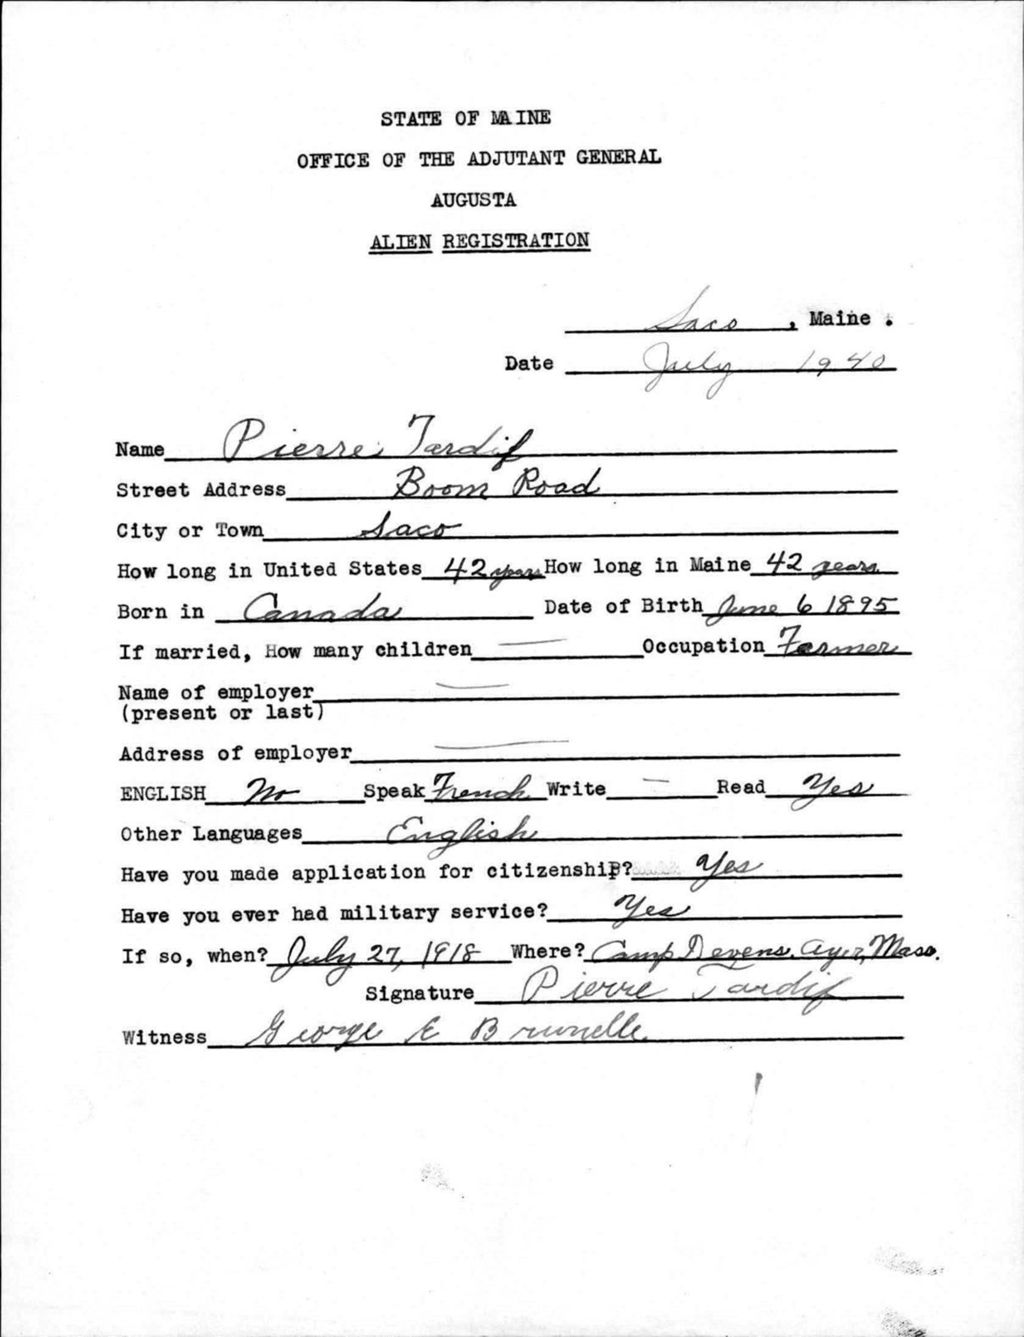 STATE OF MAINE
OFFICE OF THE ADJUTANT GENERAL
AUGUSTA
ALIEN REGISTRATION
Saco, Maine.
Date July 1940
Name Pierre Tardif
Street Address Boom Road
City or Town Saco
How long in United States 42 years How long in Maine 42 years
Born in Canada Date of Birth June 6 1895
If married, How many children — Occupation Farmer
Name of employer —
(present or last)
Address of employer —
ENGLISH No Speak French Write — Read Yes
Other Languages English
Have you made application for citizenship? Yes
Have you ever had military service? Yes
If so, when? July 27, 1918 Where? Camp Devens, Ayer, Mass.
Signature Pierre Tardif
Witness George E Brunelle